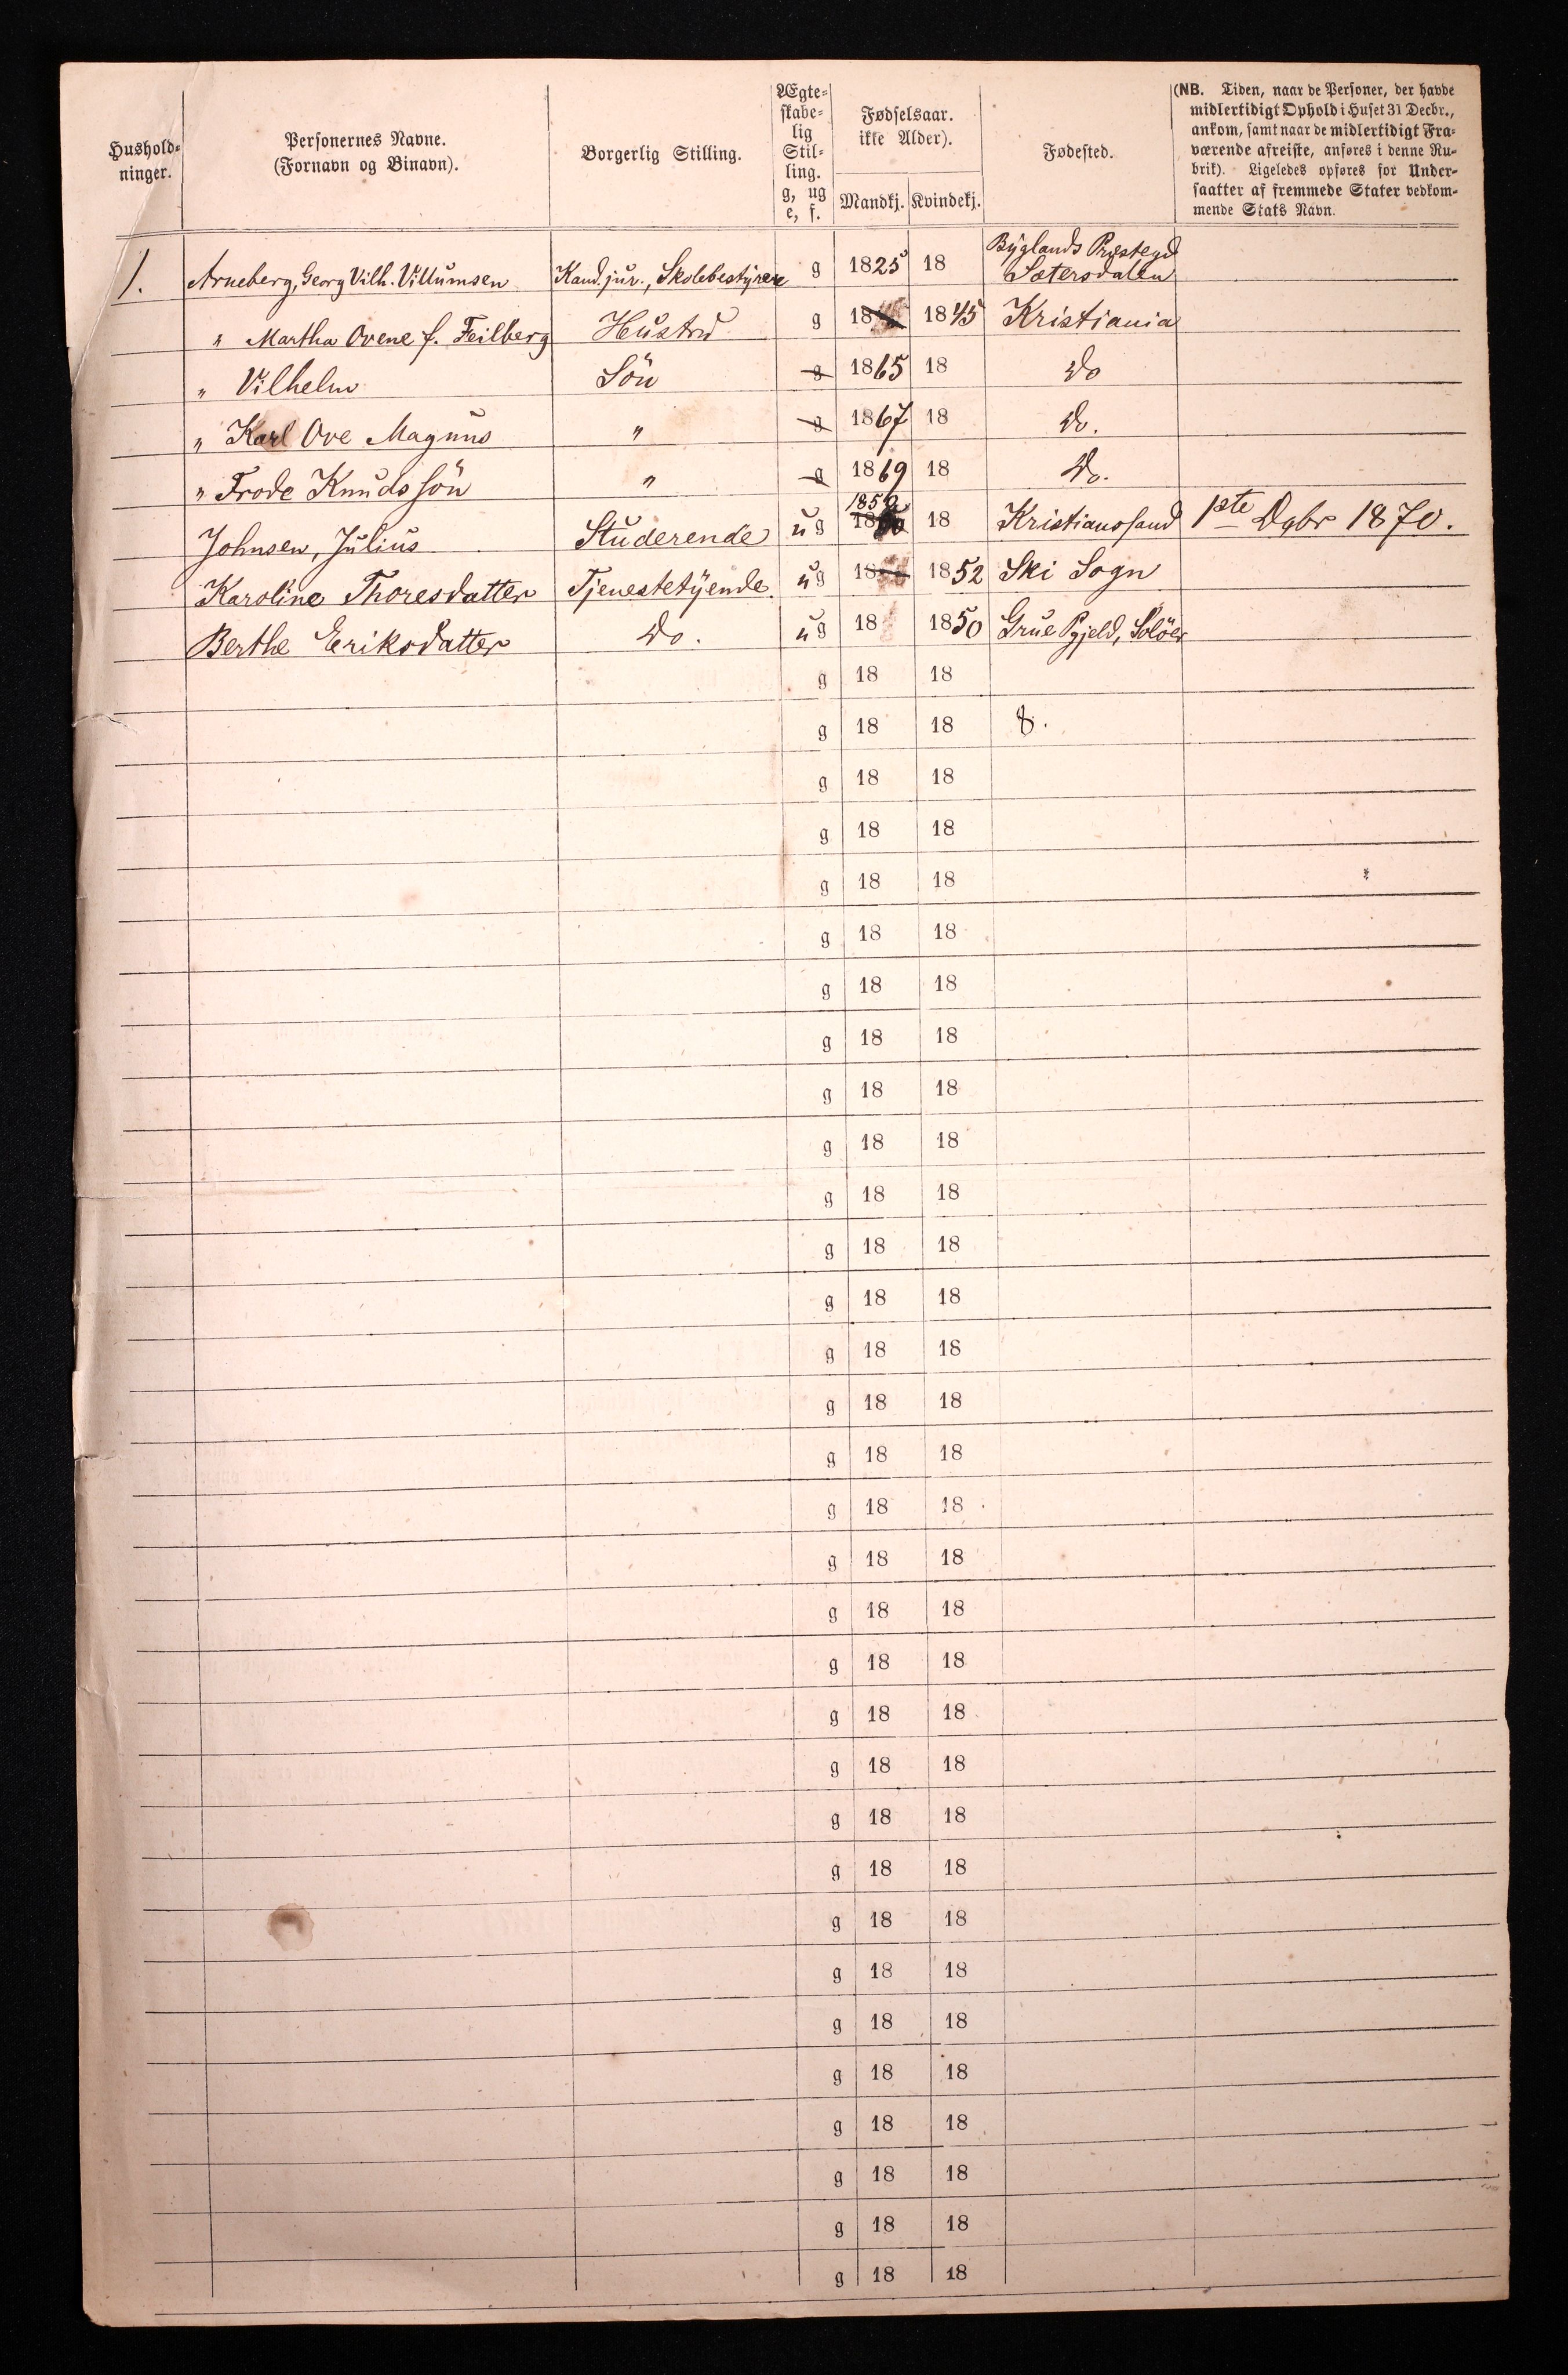 Hushold-
ninger.
Personernes Navne.
(Fornavn og Binavn).
Borgerlig Stilling.
Ægte-
skabe-
lig
Stil-
ling.
g, ug
e, f.
Fødselsaar.
ikke Alder).
Mandkj. Kvindekj.
Fødested.
(NB. Tiden, naar de Personer, der havde
midlertidigt Ophold i Huset 31 Decbr.,
ankom, samt naar de midlertidigt Fra-
værende afreiste, anføres i denne Ru-
brik). Ligeledes opføres for Under-
saatter af fremmede Stater vedkom-
mende Stats Navn.
1. Arneberg, Georg Vilh. Villumsen Kand. jur., Skolebestyrer g 1825 18 Byglands Præstegd
Sætersdalen
" Martha Ovene f. Feilberg Hustru g 18 1845 Kristiania
" Vilhelm Sön g 1865 18 Do
" Karl Ove Magnus " g 1867 18 Do.
" Frode Knudssön " g 1869 18 Do.
Johnsen, Julius Studerende ug 1852 18 Kristianssand 1ste Dcbr 1870.
Karoline Thoresdatter Tjenestetyende ug 18 1852 Ski Sogn
Berthe Eriksdatter Do. ug 18 1850 Grue Pgjeld, Solöer
g 18 18
g 18 18 8.
g 18 18
g 18 18
g 18 18
g 18 18
g 18 18
g 18 18
g 18 18
g 18 18
g 18 18
g 18 18
g 18 18
g 18 18
g 18 18
g 18 18
g 18 18
g 18 18
g 18 18
g 18 18
g 18 18
g 18 18
g 18 18
g 18 18
g 18 18
g 18 18
g 18 18
g 18 18
g 18 18
g 18 18
g 18 18
g 18 18